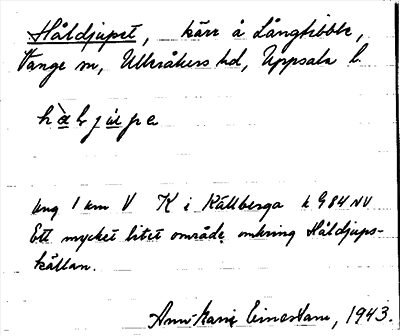 Håldjupet, kärr å Långtibble,
Vänge sn, Ulleråkers hd, Uppsala l.
hà̱l j ú̱ p e
ung 1 km V K i Källberga k G 84 NV
Ett mycket litet område omkring Håldjups-
källan.
Ann-Marie Einestam, 1943.